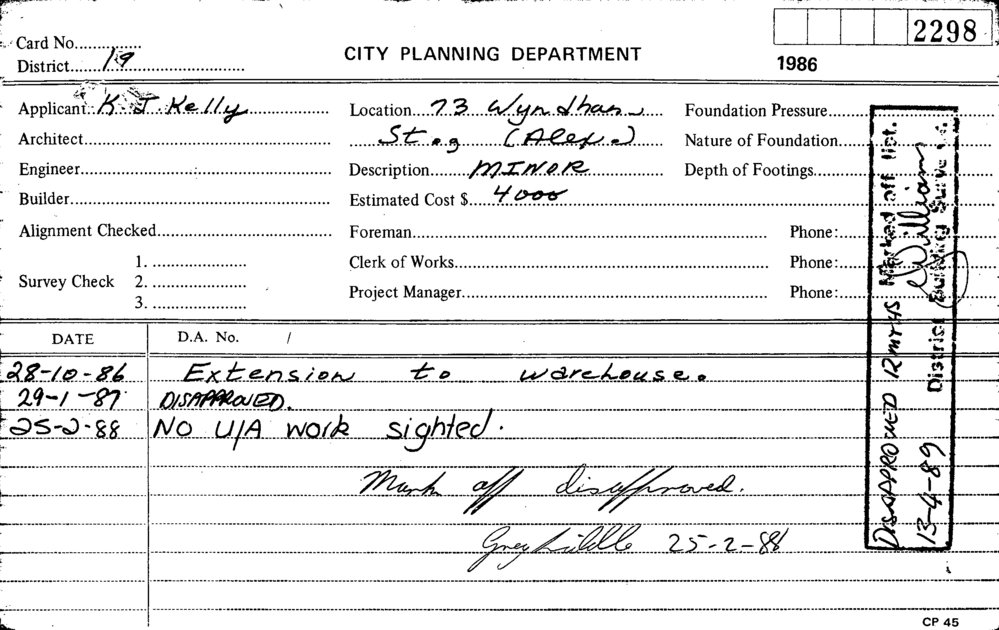 Card No.
2298
District 19
CITY PLANNING DEPARTMENT
1986
Applicant K. J. Kelly
Location 73 Wyndham
Foundation Pressure
Architect
St. (Alex.)
Nature of Foundation
Engineer
Description MINOR
Depth of Footings
Builder
Estimated Cost $ 4000
Alignment Checked
Foreman
Phone:
Survey Check
1.
2.
3.
Clerk of Works
Phone:
Project Manager
Phone:
DATE
D.A. No. /
28-10-86 Extension to warehouse.
29-1-87 DISAPPROVED.
25-2-88 NO U/A work sighted.
Mark off disapproved.
Greg Liddle 25-2-88
DISAPPROVED Marked off list.
Williams
13-4-89 District Building Surveyor
CP 45